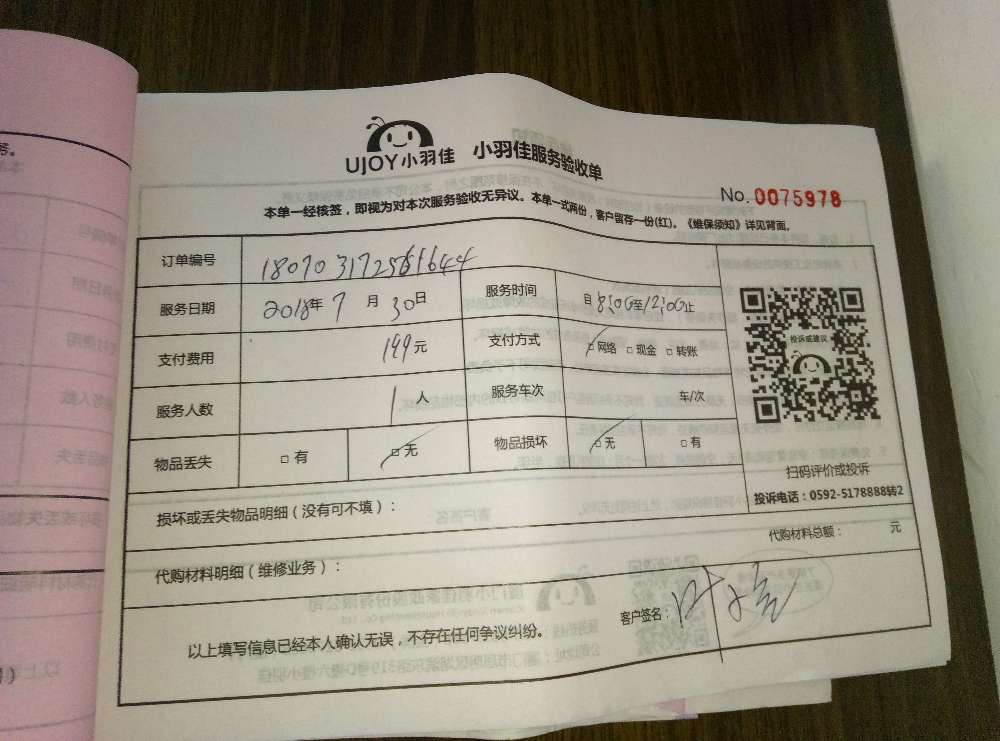 UJOY小羽佳 小羽佳服务验收单
No. 0075978
本单一经核签，即视为对本次服务验收无异议。本单一式两份，客户留存一份(红)。《维保须知》详见背面。
订单编号
服务日期 2018年7月30日 服务时间 自8:00至12:00止
支付费用 199元 支付方式 □网络 □现金 □转账
服务人数 1人 服务车次 车/次
物品丢失 □有 □无 物品损坏 □无 □有
投诉或建议
扫码评价或投诉
投诉电话：0592-5178888转2
损坏或丢失物品明细（没有可不填）：
代购材料总额： 元
代购材料明细（维修业务）：
以上填写信息已经本人确认无误，不存在任何争议纠纷。
客户签名：